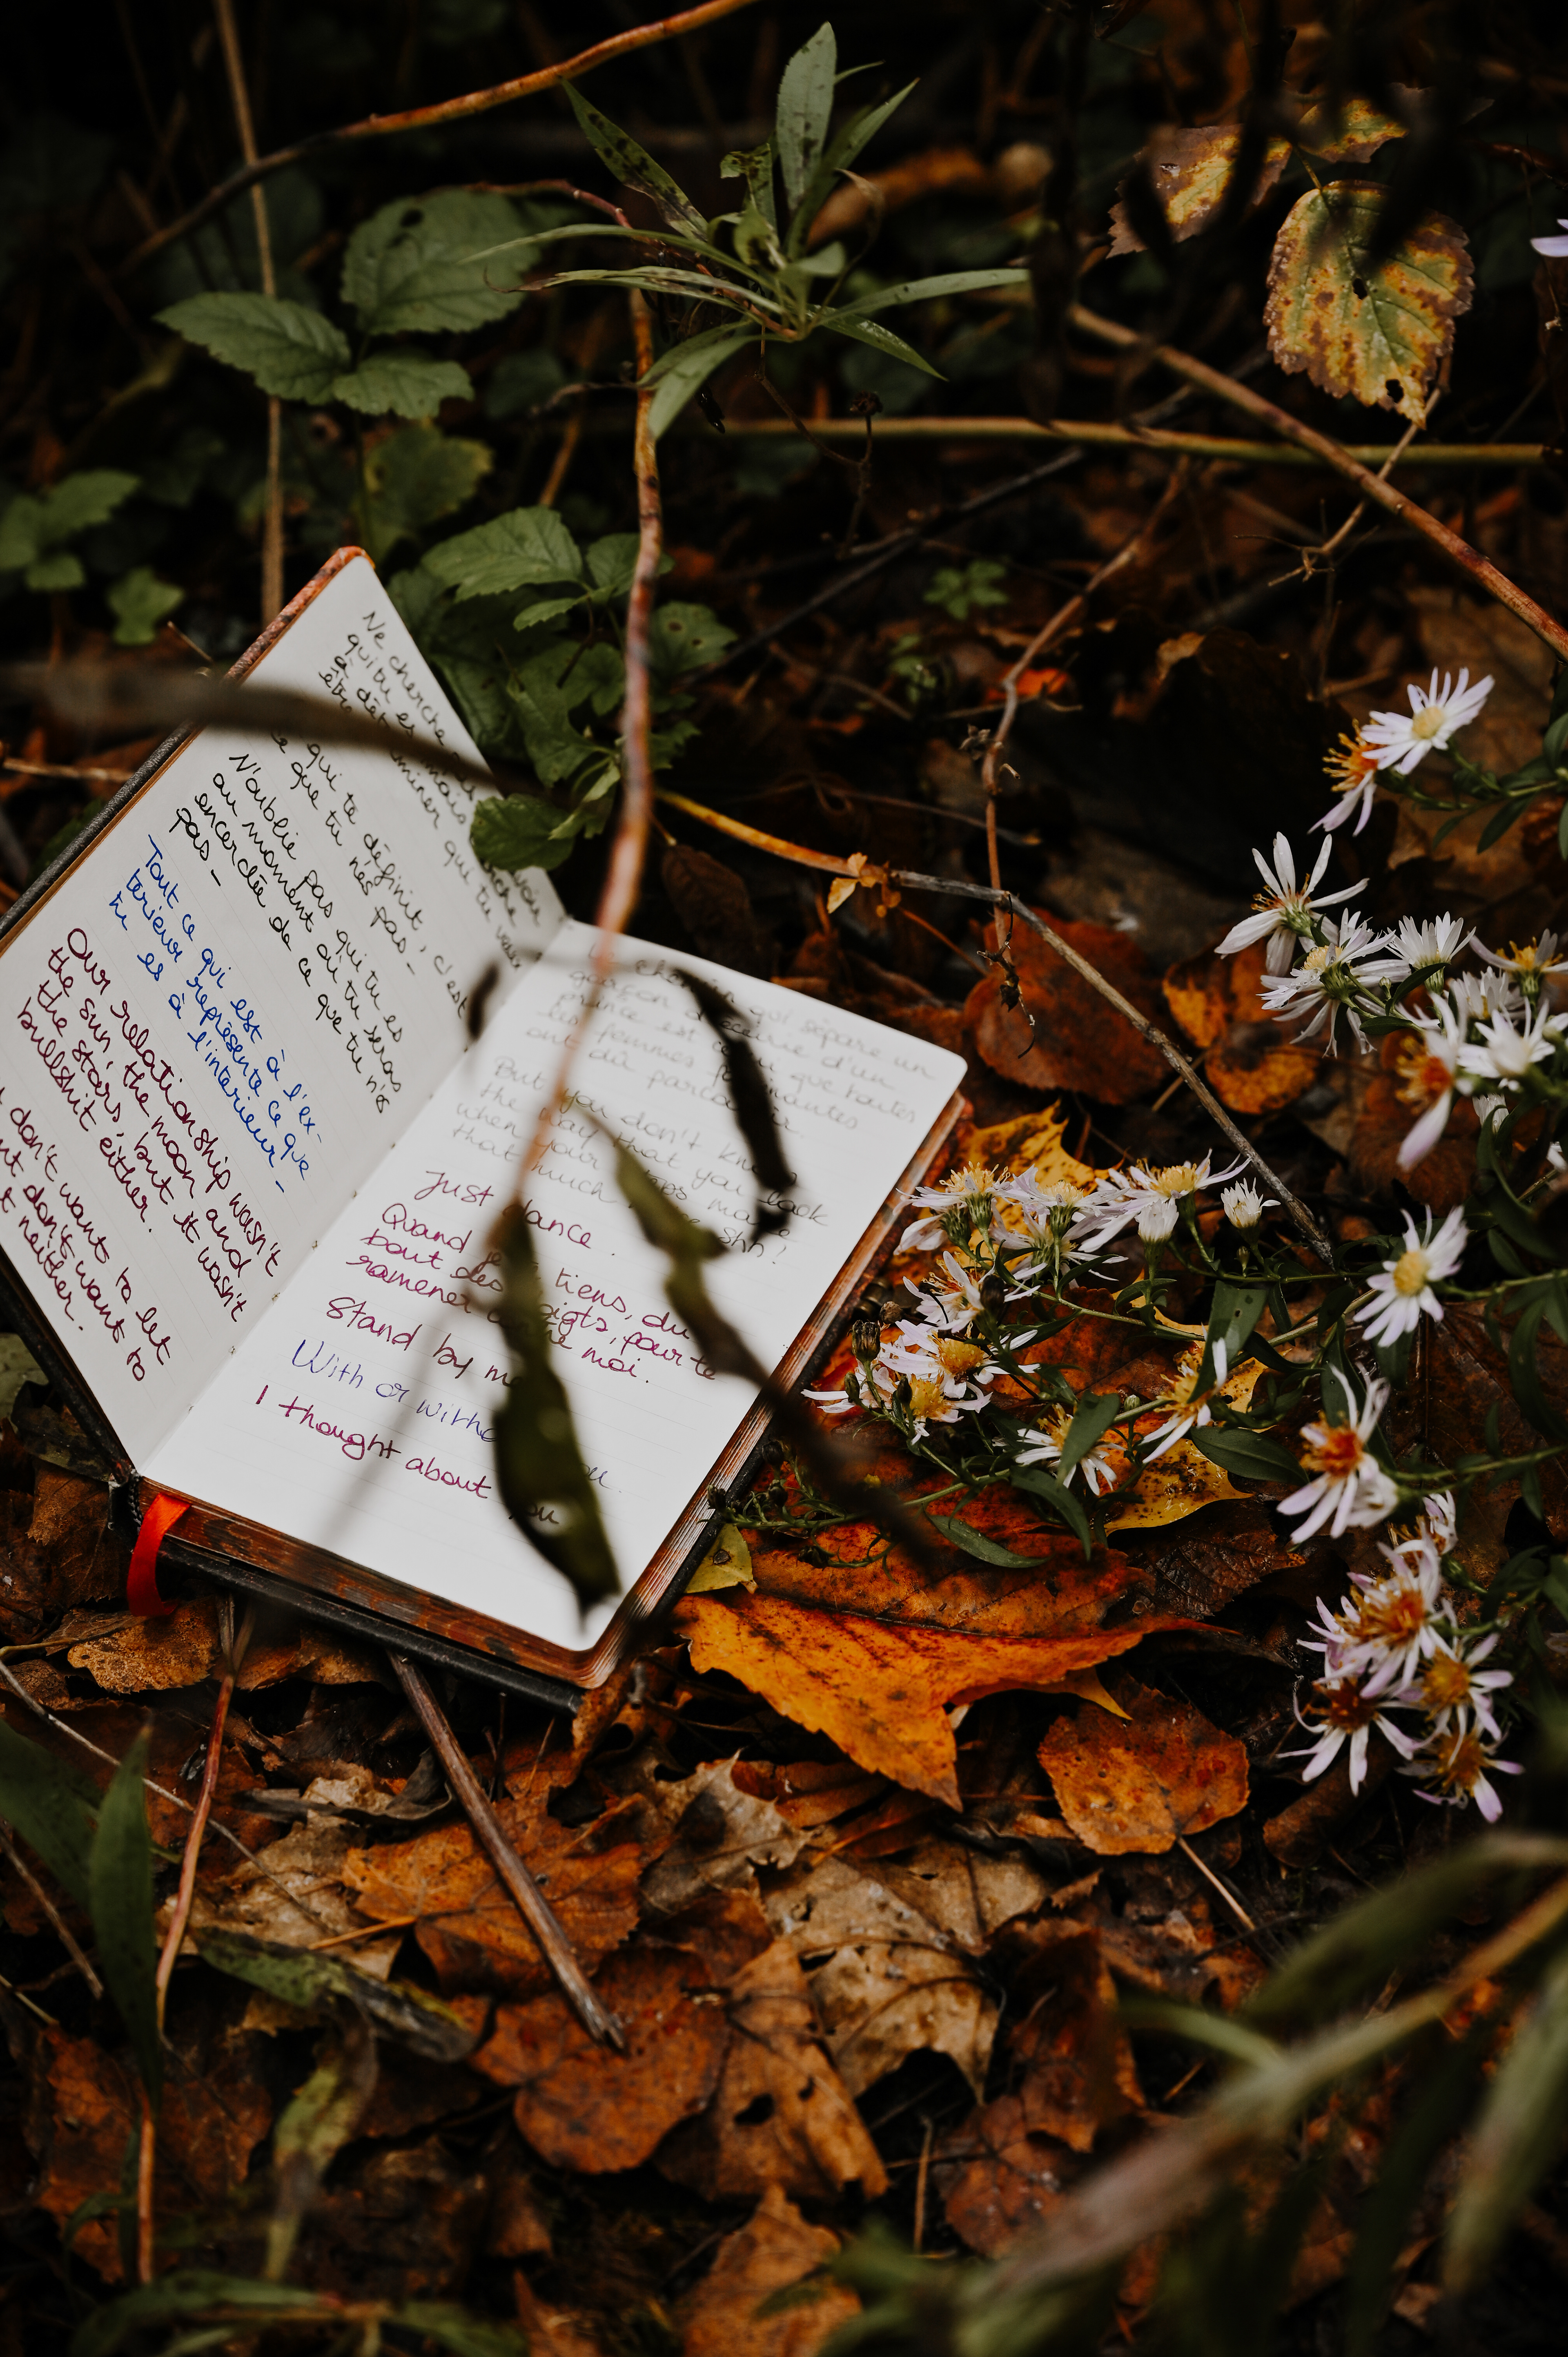 Ne cherche
qui tu es mais
à déterminer que tu
être
qui te définit, c'est
ce que tu n'es pas -
N'oublie pas qui tu es
au moment où tu seras
encerclée de ce que tu n'es
pas -
Tout ce qui est à l'ex-
térieur représente ce que
tu es à l'intérieur -
Our relationship wasn't
the sun, the moon and
the stars, but it wasn't
bullshit either.
don't want to let
don't want to
neither.
qui sépare un
garçon d'un
prince est que toutes
les femmes
ont dû
But you don't know
the way that you look
when your make
that much
Just dance.
Quand je tiens, du
bout des doigts, pour te
ramener moi.
Stand by me
With or without you.
I thought about you